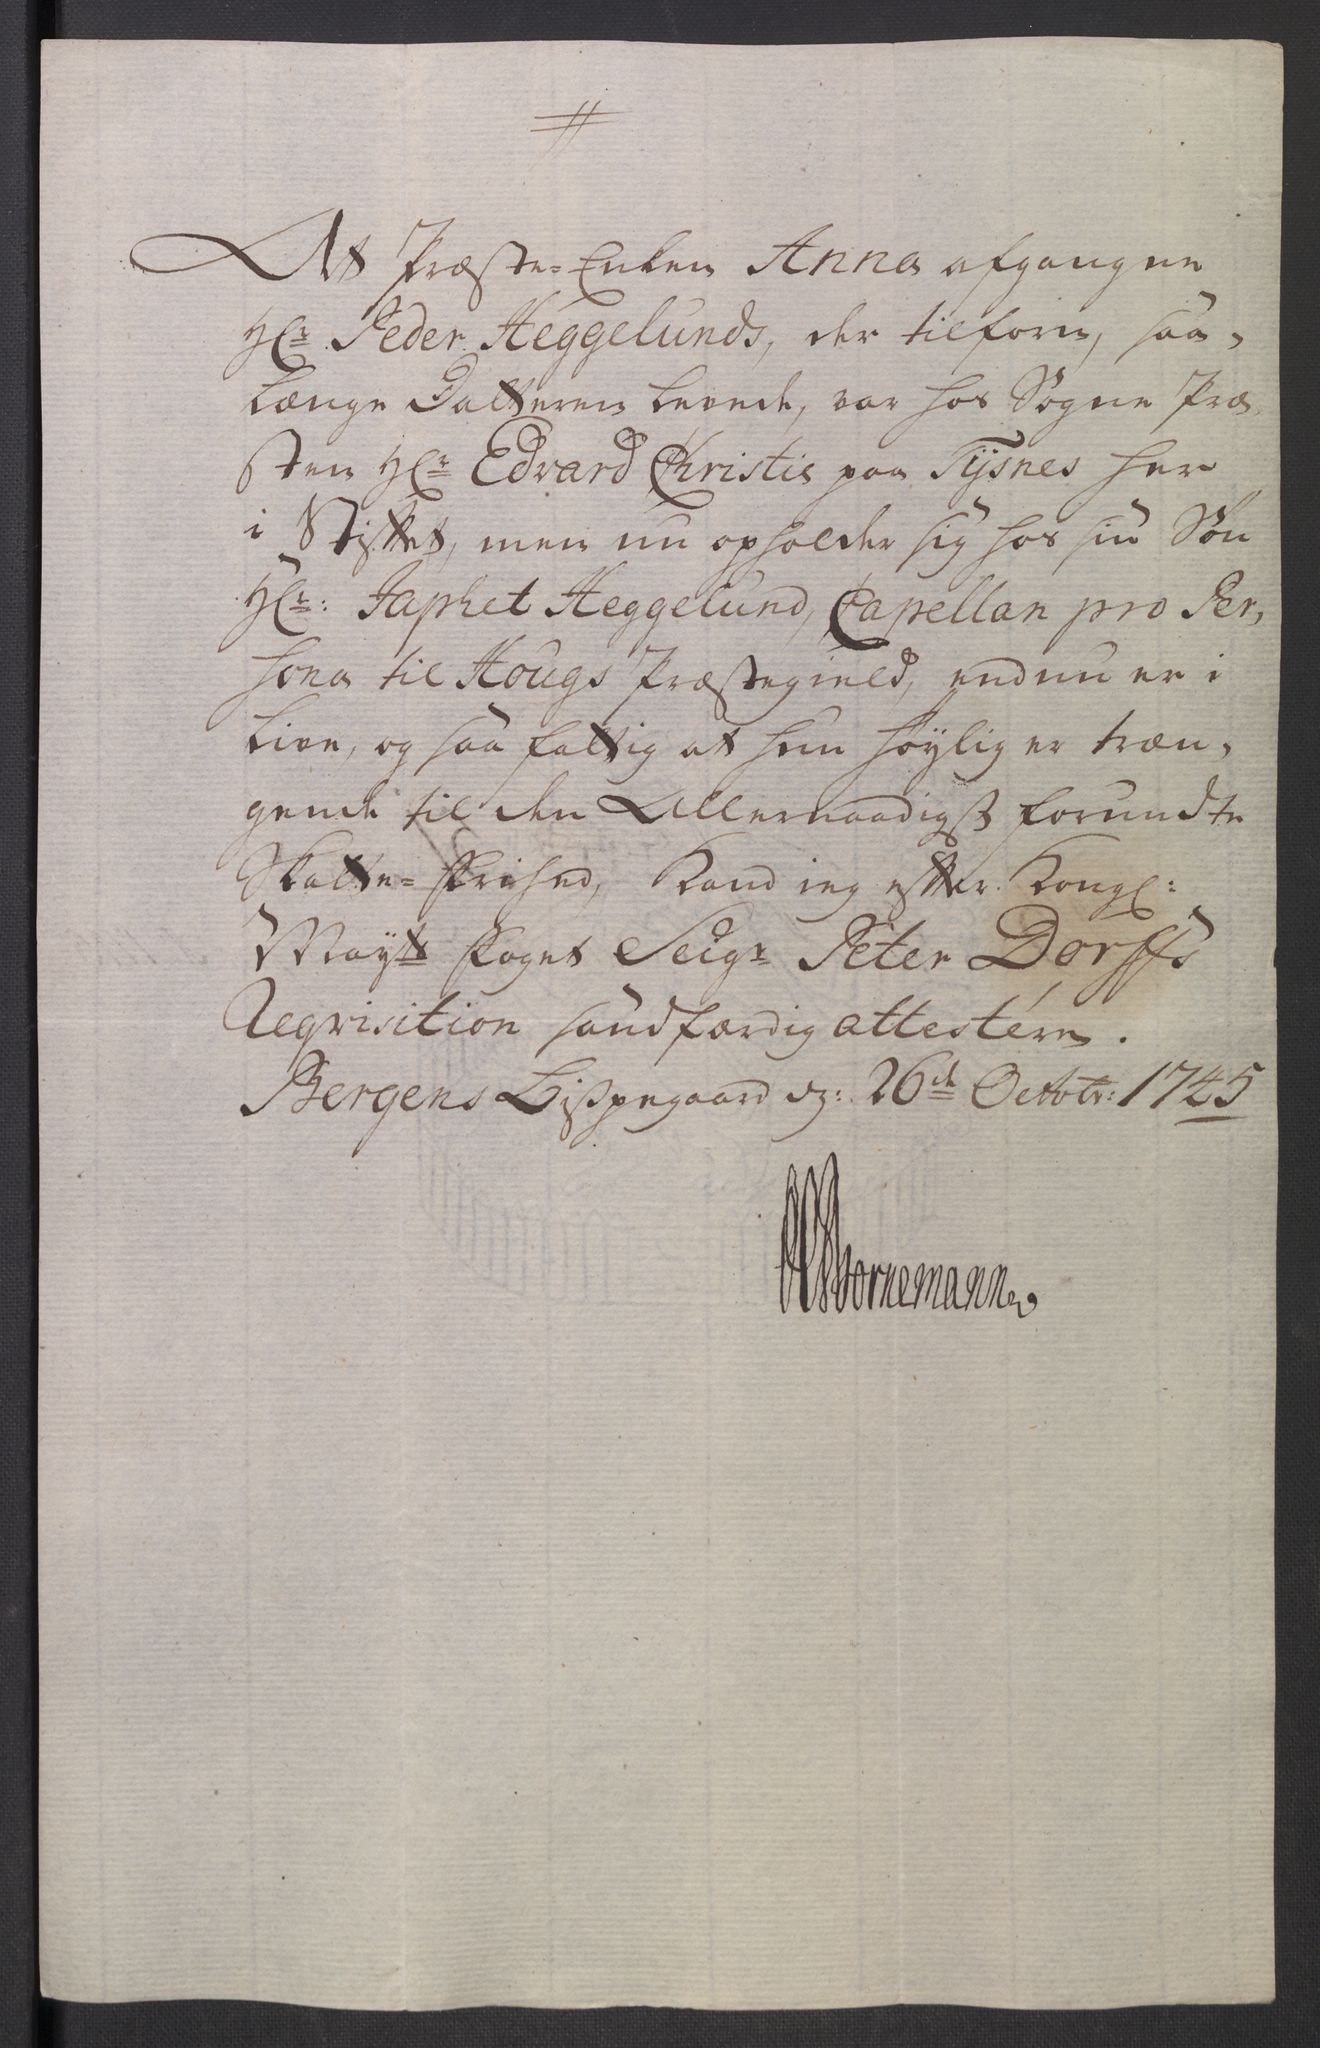 At Præste-Enken Anna afgangne
Hr: Peder Heggelunds, der tilforn, saa-
længe Datteren levede, var hos Sogne Præ-
sten Hr: Edvard Christie paa Tysnes her
i Stiftet, men nu opholder sig hos sin Søn
Hr: Japhet Heggelund, Capellan pro Per-
sona til Hougs Præstegield, endnu er i
Live, og saa fattig at hun høylig er træn-
gende til den Allernaadigst forundte
Skatte-Frihed, Kand ieg efter Kongl:
Mayts Foget Seigr Peter Dorffs
Reqvisition sandfærdig attestére.
Bergens Bispegaard d: 26de Octobr: 1745
Bornemann